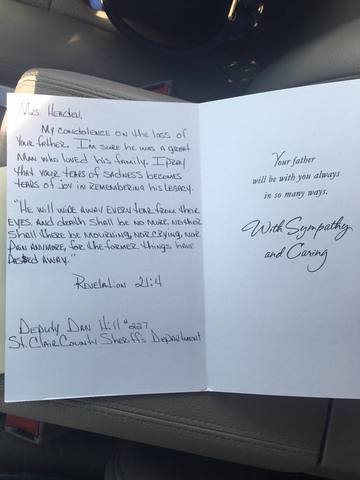 Mrs. Hendel,
My condolence on the loss of
your father. I'm sure he was a great
man who loved his family. I pray
that your tears of sadness becomes
tears of joy in remembering his legacy.
"He will wipe away every tear from their
eyes and death shall be no more neither
shall there be mourning, nor crying, nor
pain anymore, for the former things have
passed away."
Revelation 21:4
Deputy Dan Hill #227
St. Clair County Sheriff's Department
Your father
will be with you always
in so many ways.
With Sympathy
and Caring